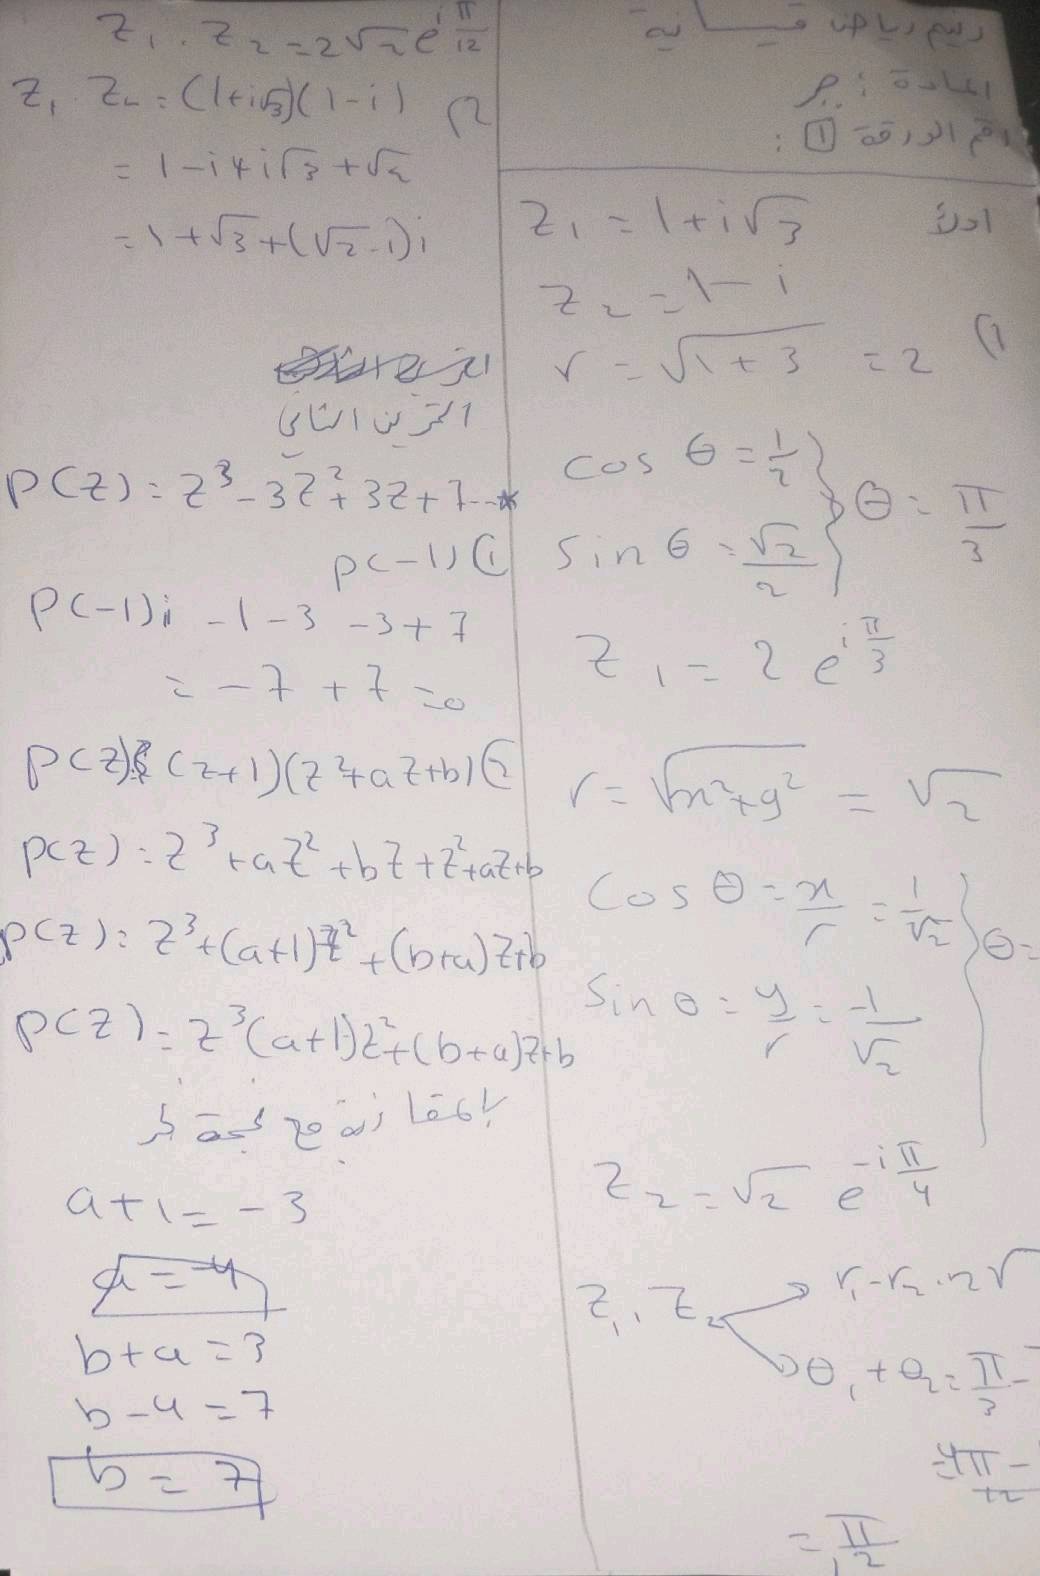 رنيم رياض قسانية
المادة : جبر
رقم الورقة 1 :
اولاً
z₁ = 1 + i√3
z₂ = 1 - i
1)
r = √1 + 3 = 2
cos θ = 1/2
sin θ = √2/2 } θ = π/3
z₁ = 2 e^{i π/3}
r = √x² + y² = √2
cos θ = x/r = 1/√2
sin θ = y/r = -1/√2 } θ =
z₂ = √2 e^{-i π/4}
z₁ . z₂
r₁ - r₂ . 2√
θ₁ + θ₂ = π/3 -
= 4π - /12
= π/12
z₁ . z₂ = 2√2 e^{i π/12}
2) z₁ . z₂ = (1 + i√3)(1 - i)
= 1 - i + i√3 + √2
= 1 + √3 + (√2 - 1) i
التمرين الثاني
P(z) = z³ - 3z² + 3z + 7 --*
1) P(-1)
P(-1) = -1 - 3 - 3 + 7
= -7 + 7 = 0
2) P(z) = (z+1)(z² + az + b)
P(z) = z³ + az² + bz + z² + az + b
P(z) = z³ + (a+1)z² + (b+a)z + b
P(z) = z³ (a+1)z² + (b+a)z + b
a + 1 = -3
a = -4
b + a = 3
b - 4 = 7
b = 7